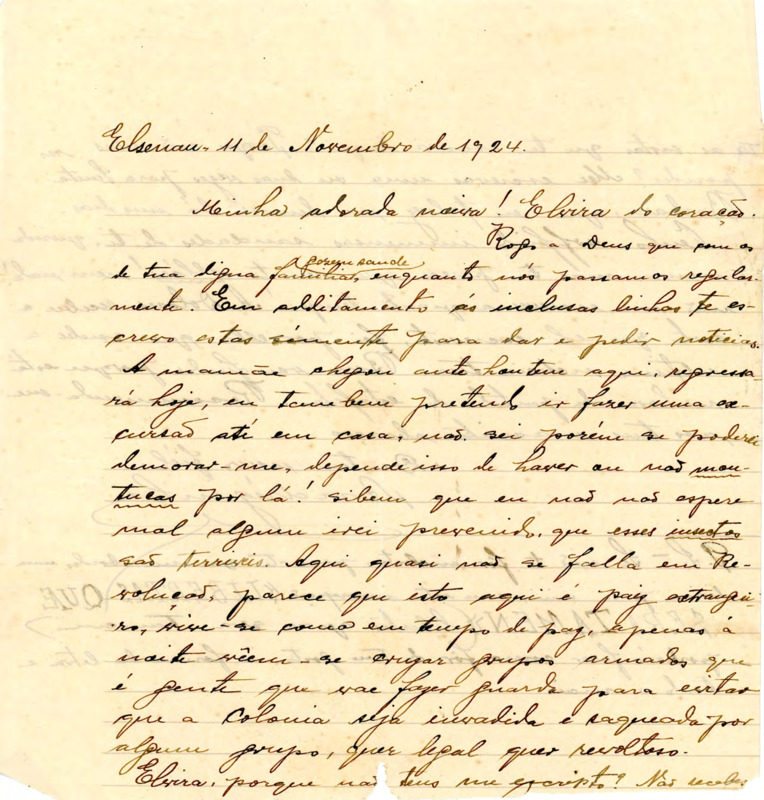 Elsenau - 11 de Novembro de 1924.
Minha adorada noiva! Elvira do coração.
Rogo a Deus que com os
gozem saude
de tua digna familia, enquanto nós passamos regular-
mente. Em additamento ás inclusas linhas te es-
crevo estas sómente para dar e pedir noticias.
A mamãe chegou ante-hontem aqui, regressa-
rá hoje, eu tambem pretendo ir fazer uma ex-
cursão até em casa, não sei porém se poderei
demorar-me, depende isso de haver ou não mou-
tucas por lá! sibem que eu não não espere
mal algum irei prevenido, que esses insectos
são terriveis. Aqui quasi não se falla em Re-
volução, parece que isto aqui é paiz extrangei-
ro, vive-se como em tempo de paz, apenas á
noite vêem-se cruzar grupos armados que
é gente que vae fazer guarda para evitar
que a colonia seja invadida e saqueada por
algum grupo, quer legal quer revoltoso.
Elvira, porque não tens me escripto? Não recebes